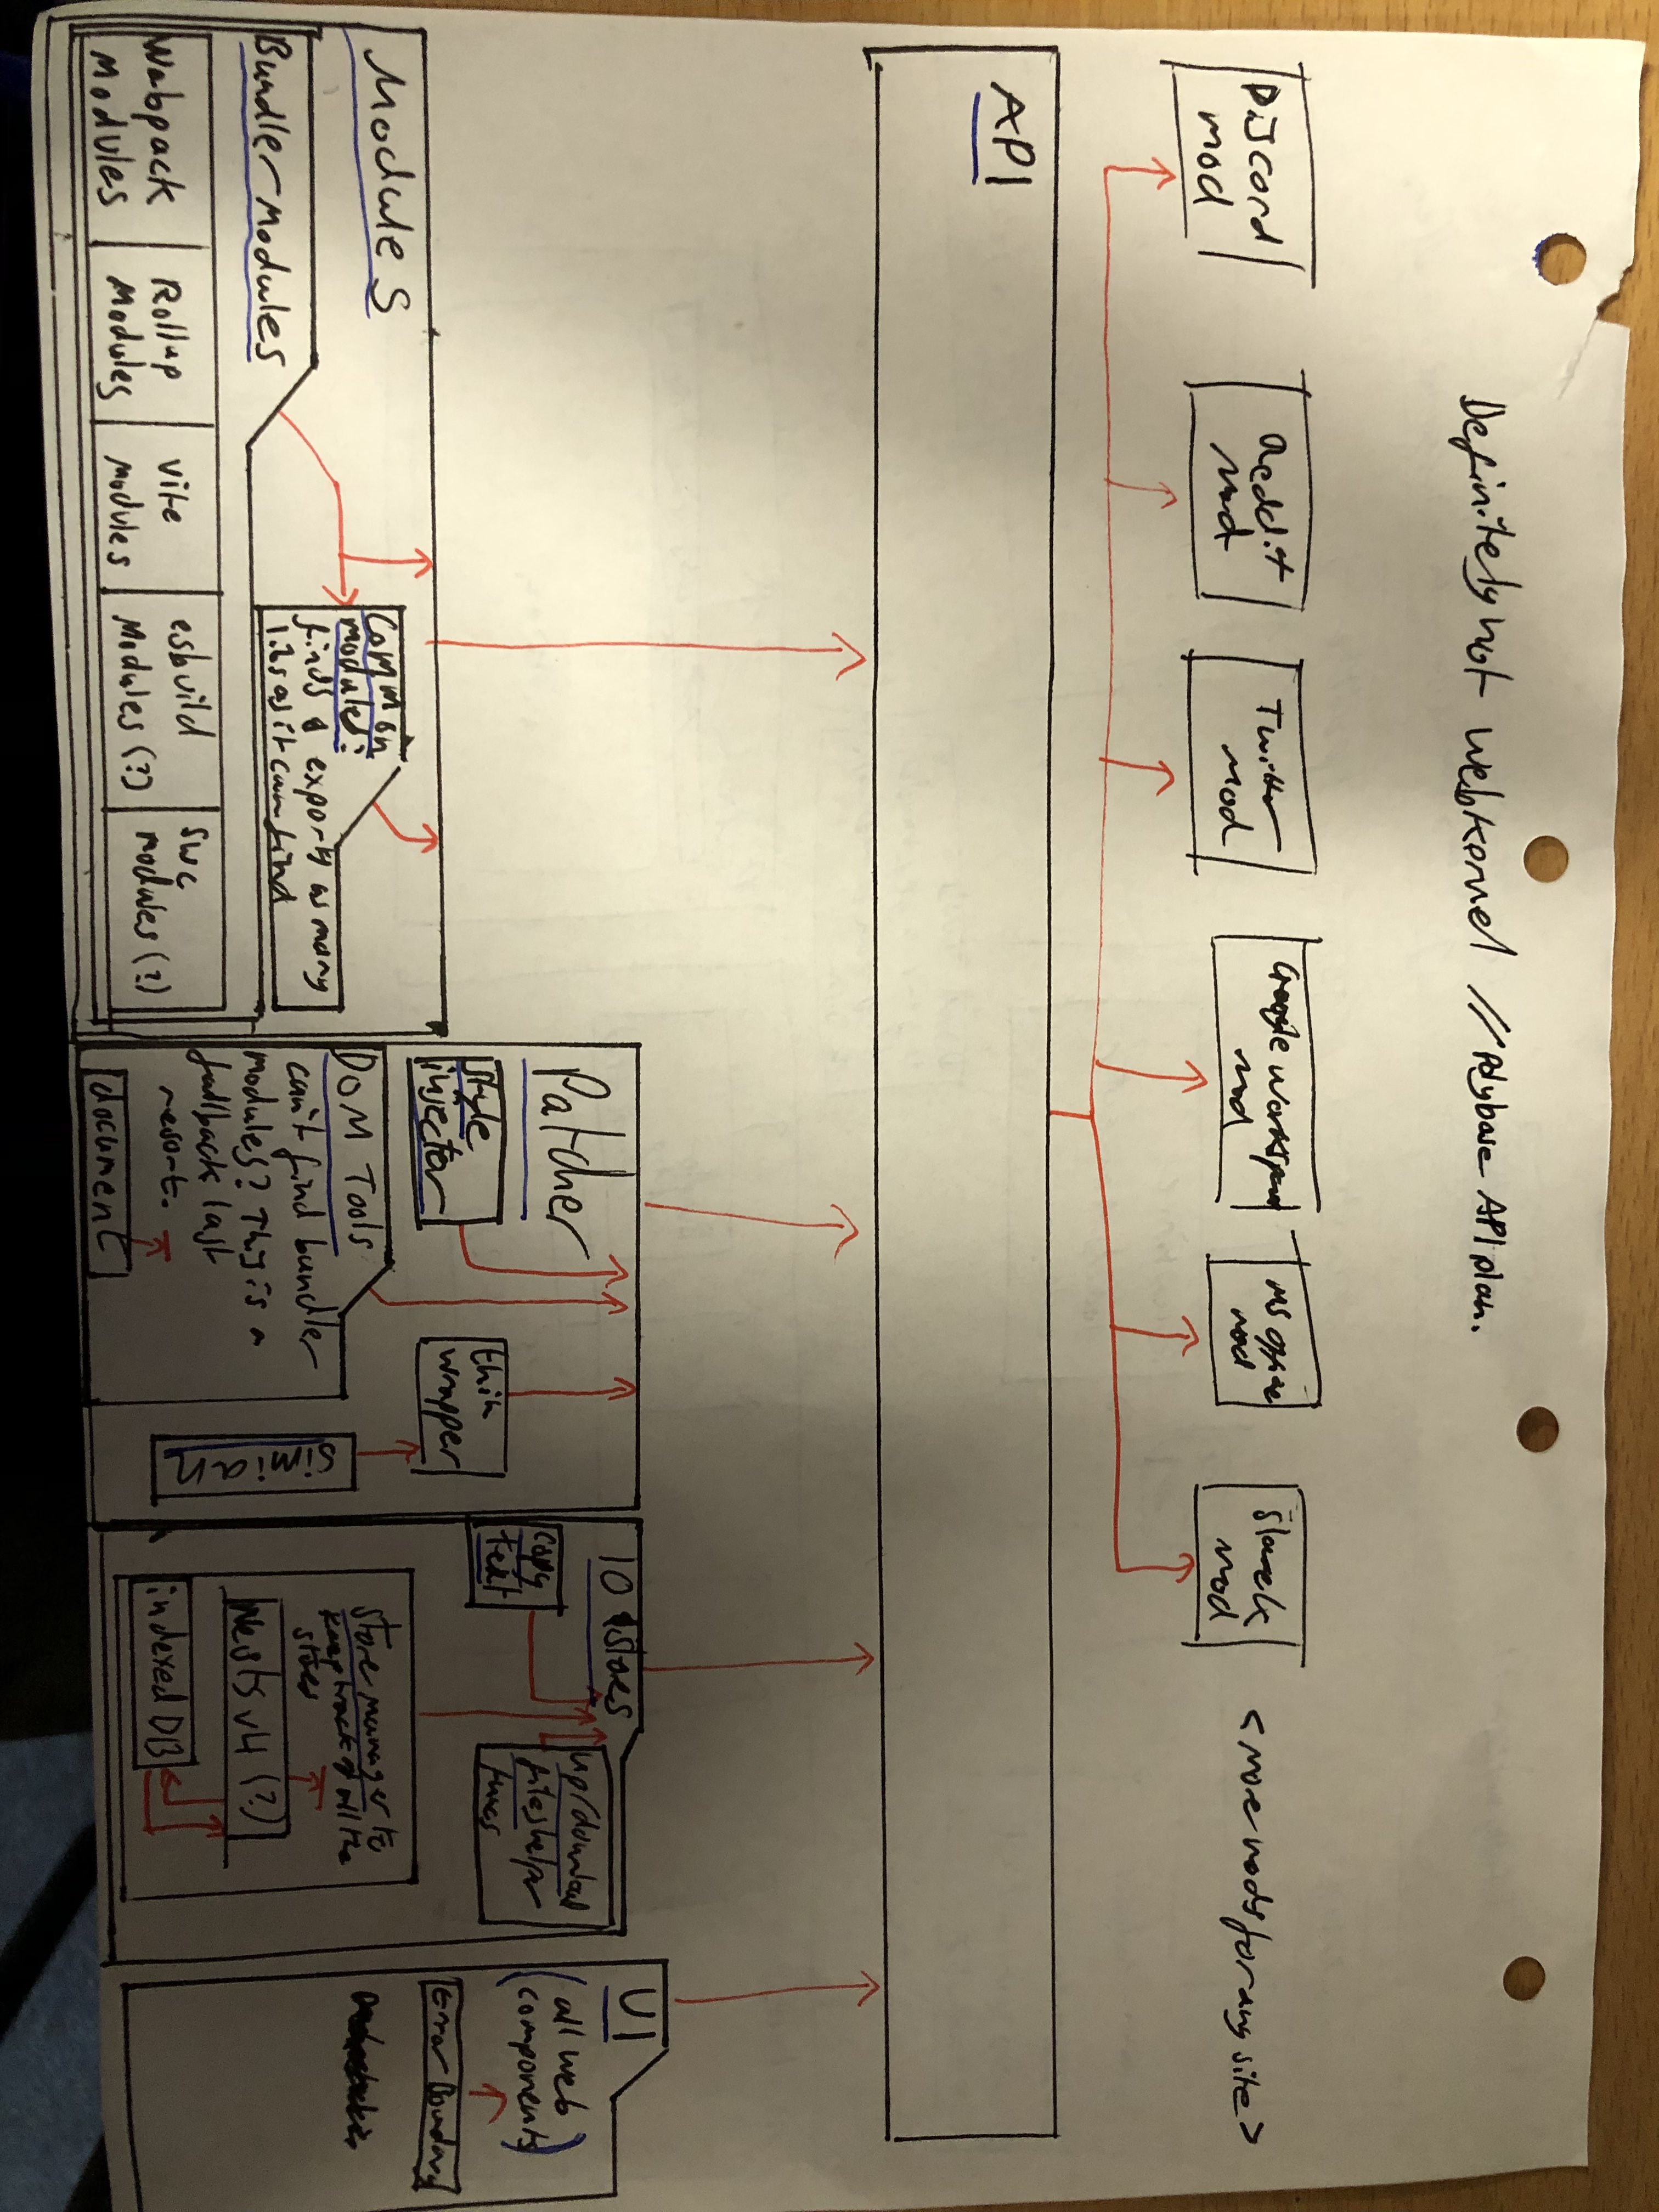 Definitely not webkernel // Polybase API plan.
Discord
mod
Reddit
mod
Twitter
mod
Google Workspace
mod
MS Office
mod
Slack
mod
<more mods for any site>
API
Modules
Bundler Modules
Common
modules:
finds & exports as many
libs as it can find
Webpack
Modules
Rollup
Modules
Vite
modules
esbuild
Modules (?)
SWC
modules (?)
Patcher
Style
injector
thin
wrapper
simian
DOM Tools
can't find bundler
modules? This is a
fallback last
resort.
document
IO
Copy
text
up/download
files helper
Store manager to
keep track of all the
Nests v4 (?)
indexedDB
UI
(all web
components)
Error Boundary